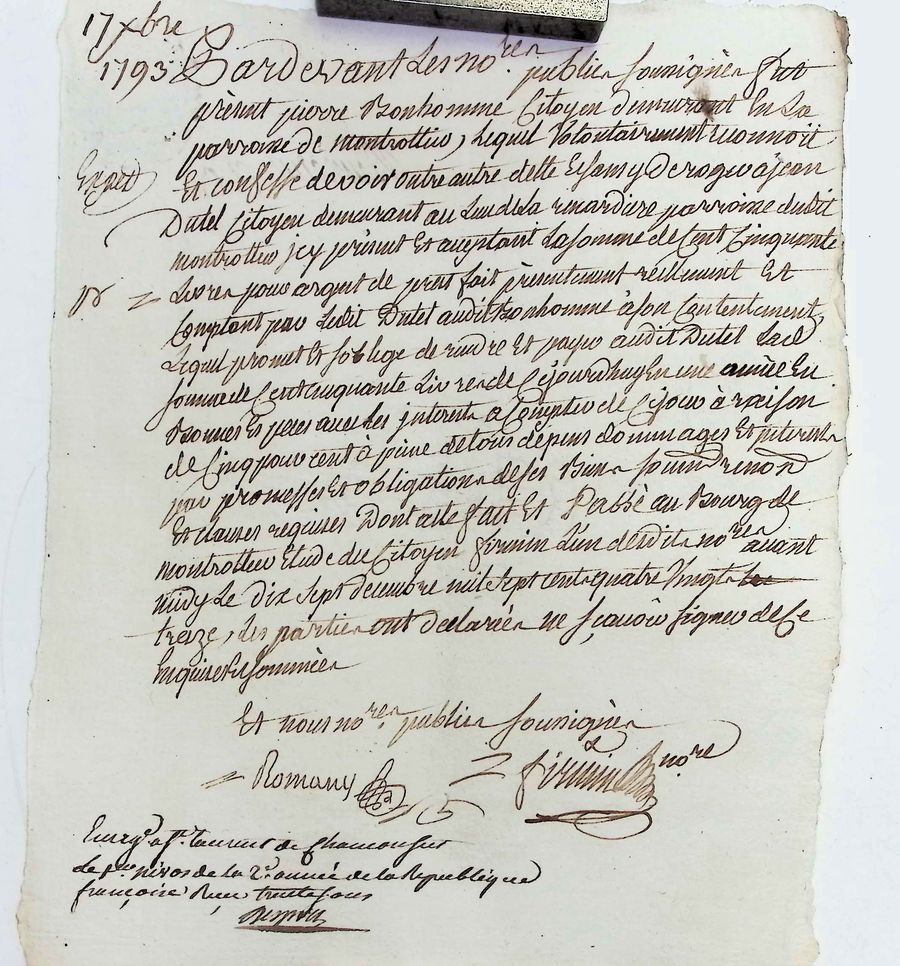 17 xbre
1793 Pardevant Les no.res publics soussignés fut
présent pierre Bonhomme Citoyen demeurant En La
parroisse de montrottier, Lequel Volontairement reconnoit
Expet
Et confesse devoir outre autre dette à jean
Dutel Citoyen demeurant au Lieu de La renardiere parroisse dudit
montrottier jcy présent Et aceptant La somme de Cent Cinquante
Livres pour argent de prest fait présentement réellement Et
Comptant par Ledit Dutel audit Bonhomme à son Contentement,
Lequel promet Et s'oblige de rendre Et payer audit Dutel Lad
somme de Cent cinquante Livres de Cejourdhuy En une année En
Bonnes Especes avec Les interets a Compter de Cejour à raison
de Cinq pour cent à peine de tous dépens dommages Et interets
par promesses Et obligations de ses Biens
Et clauses requises Dont acte fait Et Passé au Bourg de
montrottier Etude du Citoyen firmin L'un desdits no.res avant
midy Le Dix Sept decembre mil Sept cent quatre Vingt
treize, Les parties ont declarées ne sçavoir signer de Ce
Enquises Et sommées
Et nous no.res publics soussignés
Romany firmin no.re
Enregé a St. Laurent de Chamousset
Le nivos de la 2e année de la Republique
françoise Reçu trente sous